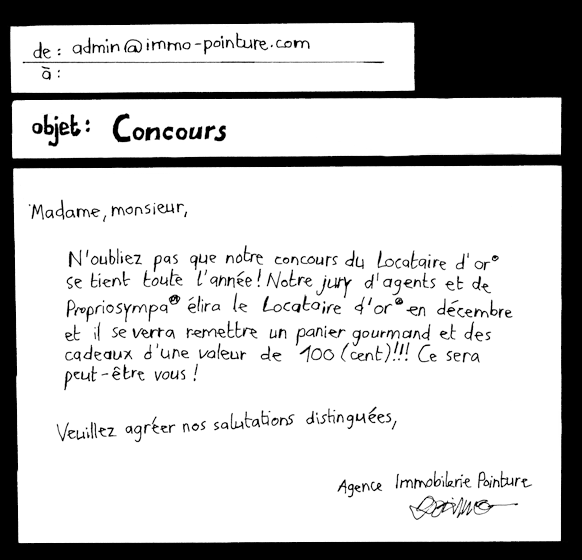 de : admin@immo-pointure.com
à :
objet : Concours
Madame, monsieur,
N'oubliez pas que notre concours du Locataire d'or®
se tient toute l'année ! Notre jury d'agents et de
Propriosympa® élira le Locataire d'or® en décembre
et il se verra remettre un panier gourmand et des
cadeaux d'une valeur de 100 (cent) !!! Ce sera
peut-être vous !
Veuillez agréer nos salutations distinguées,
Agence Immobilerie Pointure